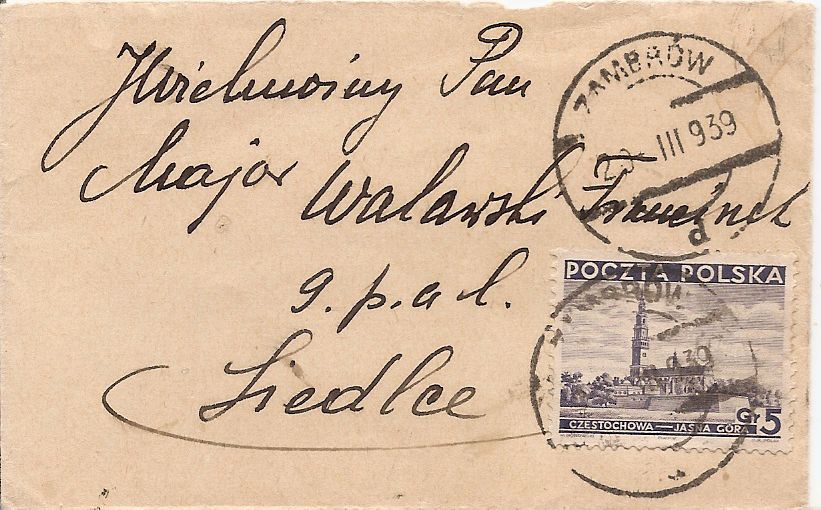 JWielmożny Pan
Major Walawski Franciszek
9. p. a. l.
Siedlce
ZAMBRÓW
III 939
POCZTA POLSKA
ZAMBRÓW
939
CZĘSTOCHOWA — JASNA GÓRA
Gr 5